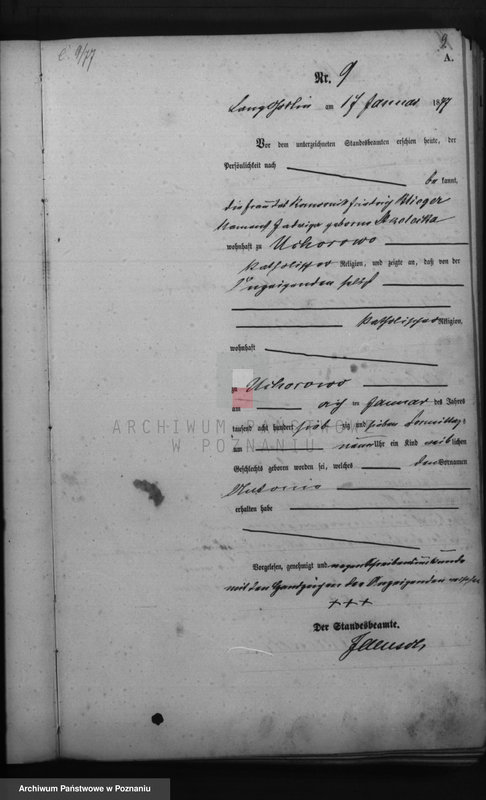 C. 9/77
2
A.
Nr. 9
Lang Goslin am 17 Januar 1877
Vor dem unterzeichneten Standesbeamten erschien heute, der
Persönlichkeit nach
be kannt,
die Frau des Komornik Friedrich Krieger
Namens Jadwiga geborene
wohnhaft zu Uchorowo
katholischer Religion, und zeigte an, daß von der
Anzeigenden selbst
katholischer Religion,
wohnhaft
zu Uchorowo
am ten Januar des Jahres
tausend acht hundert sieb zig und sieben Vormittags
um neun Uhr ein Kind weib lichen
Geschlechts geboren worden sei, welches den Vornamen
Antonie
erhalten habe
Vorgelesen, genehmigt und wegen Schreibensunkunde
mit den Handzeichen der Anzeigenden versehen
+++
Der Standesbeamte.
ARCHIWUM PAŃSTWOWE
W POZNANIU
Archiwum Państwowe w Poznaniu